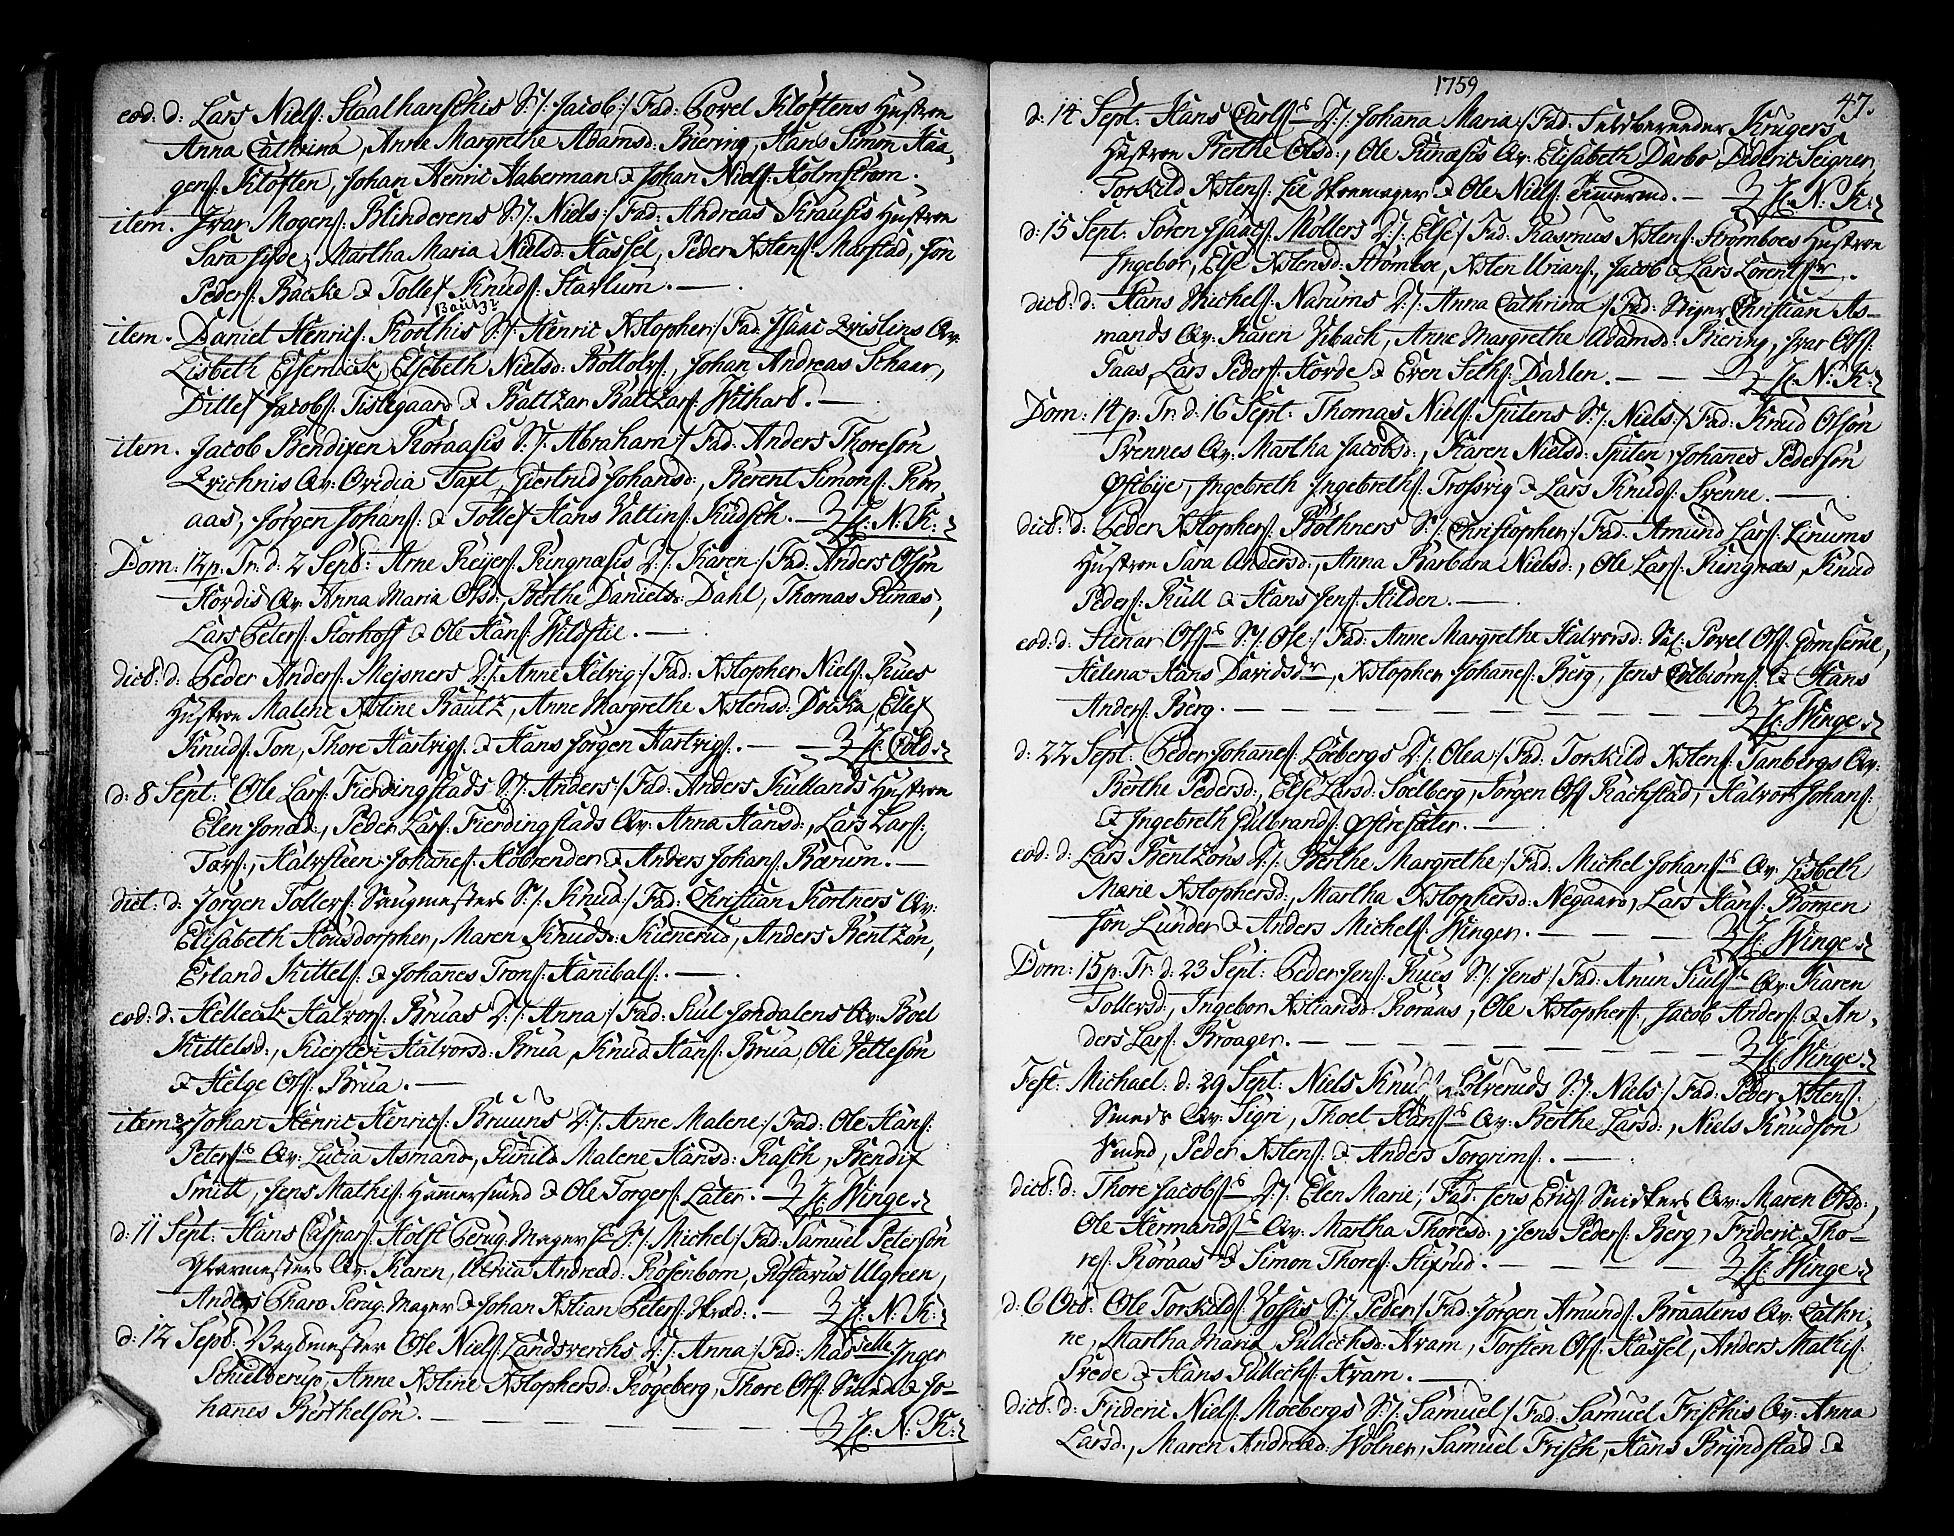 eod: d: Lars Niels: Staalhanschis S:/: Jacob:/ Fad: Povel Kloftens Hustroe
Anna Cathrina, Anne Margrethe Adamsd: Biering, Hans Simon Haa,
gens: Kloften, Johan Henric Haberman & Johan Niels: Holmstrøm.
item. Ivar Mogens: Blinderens S:/: Niels:/ Fad: Andreas Krausis Hustroe
Sara, Martha Maria Nielsd: Hassel, Peder Xstens: Marstad, Jon
Peders: Backe & Tollef Knuds: Skarlum.
Bautz
item. Daniel Henrics: Koothis S:/: Henric Xstopher:/ Fad: Isaac Qvislins Qv:
Lisbeth, Elsebeth Nielsd: Bottolvs:, Johan Andreas Schaar,
Ditlef Jacobs: Tislegaard & Baltzar Baltzars: Withard.
item. Jacob Bendixen Roraasis S:/: Abraham:/ Fad: Anders Thoreson
Erichnis Qv: Ovidia Taxt, Giertrud Johansd:, Berent Simons: Ror
aas, Jørgen Johans: & Tollef Hans Vattin Kudsch. H: N: K:
Dom: 12 p: Tr: d: 2 Septb: Arne Reijers: Ringnæsis D:/: Karen:/ Fad: Anders Olson
Hordis Qv: Anna Maria Olsd:, Berthe Danielsd: Dahl, Thomas Runæs,
Lars Peters: Storhoff & Ole Hans: Wildstie.
dict: d: Peder Anders: Mejsners D:/: Anne Helvig:/ Fad: Xstopher Niels: Rues
Hustroe Malene Xstine Bautz, Anne Margrethe Xstensd: Docka, Ellef
Knuds: Ton, Thore Hartvigs: & Hans Jørgen Hartvigs:. H: Cold
d: 8 Sept: Ole Lars: Fierdingstads S:/: Anders:/ Fad: Anders Kullands Hustroe
Elen Jonæd:, Peder Lars: Fierdingstads Qv: Anna Hansd:, Lars Lars:
Tors:, Halvsteen Johanes: Hobrender & Anders Johans: Bærum.
dict: d: Jørgen Tollers: Saugmesters S:/: Knud:/ Fad: Christian Kortners Qv:
Elisabeth Housdorpher, Maren Knudsd: Kienerud, Anders Bentzon,
Erland Kittels: & Johanes Trons: Hanibals:.
eod: d: Helleck Halvors: Bruas D:/: Anna:/ Fad: Kiul Jondalens Qv: Boel
Kittelsd:, Kiersten Halvorsd: Brua, Knud Hans: Brua, Ole Vetleson
& Helge Ols: Brua.
item: Johan Henric Henrics: Bruuns D:/: Anne Malene:/ Fad: Ole Hans:
Peters: Qv: Lucia Asmand, Gunild Malene Hansd: Rasch, Bendix
Smitt, Jens Mathis: Hamersmed & Ole Torgers: Later. H: Winge
d: 11 Sept: Hans Caspars: Holst Perug: Mager S:/: Michel:/ Fad: Samuel Peterson
Qv: Karen, Ulrica Andread: Rosenborn, Gustavus Ulgreen,
Anders Charo Perug: Mager & Johan Xstian Peters:. H: N: K:
d: 12 Septb: Bergmester Ole Niels: Landsverchs D:/: Anna:/ Fad: Madselle Inger
Schielderup, Anne Xstine Xstophersd: Rogeberg, Thore Ols: Smed & Jo-
hanes Berthelson. H: N: K:
1759
47.
d: 14 Sept: Hans Carls: D:/: Johana Maria:/ Fad: Feldbereeder Krugers
Hustroe Berthe Olsd:, Ole Runæsis Qv: Elisabeth Darbo, Dideric Seigner
Torkild Xstens: Lie Skoemager & Ole Niels:. H: N: K:
d: 15 Sept: Søren Isaacs: Mollers D:/: Else:/ Fad: Rasmus Xstens: Strømboes Hustroe
Ingebor, Else Xstensd: Strømboe, Xsten Urians:, Jacob & Lars Lorents:.
dict: d: Hans Michels: Narums D:/: Anna Cathrina:/ Fad: Christian As-
mands Qv: Karen Vibach, Anne Margrethe Adamsd: Biering, Ivar Ols:
Gaas, Lars Peders: Horde & Even Seths: Dahlen. H: N: K:
Dom: 14 p: Tr: d: 16 Sept: Thomas Niels: Spitens S:/: Niels:/ Fad: Knud Olson
Svennes Qv: Martha Jacobsd:, Karen Nielsd: Spiten, Johanes Pederson
Østbije, Ingebreth Ingebreths: Trosvig & Lars Knuds: Svenne.
dict: d: Peder Xstophers: Bothners S:/: Christopher:/ Fad: Amund Lars: Linums
Hustroe Sara Andersd:, Anna Barbara Nielsd:, Ole Lars: Ringnæs, Knud
Peders: Kull & Hans Jens: Hilden.
eod: d: Stenar Ols: S:/: Ole:/ Fad: Anne Margrethe Halvorsd: Sal: Povel Ols:,
Helena Hans Davidsdr, Xstopher Johanes: Berg, Jens Colbiørns: & Hans
Anders: Berg. H: Winge
d: 22 Sept: Peder Johanes: Loebergs D:/: Olea:/ Fad: Torkild Xstens: Tanbergs Qv:
Berthe Pedersd:, Else Larsd: Soelberg, Jørgen Ols: Rachstad, Halvor Johans:
& Ingebreth Gulbrands: Østresæter.
eod: d: Lars Bentzons D:/: Berthe Margrethe:/ Fad: Michel Johans: Qv: Lisbeth
Marie Xstophersd:, Martha Xstophersd: Negaard, Lars Hans: Bomen
Jon Lunder & Anders Michels: Winger. H: Winge
Dom: 15 p: Tr: d: 23 Sept: Peder Jens: Rues S:/: Jens:/ Fad: Anun Kiuls: Qv: Karen
Tollersd:, Ingebor Xstiansd: Roraas, Ole Xstophers:, Jacob Anders: & An,
ders Lars: Broager. H: Winge
Fest: Michael: d: 29 Sept: Niels Knuds: Solveruds S:/: Niels:/ Fad: Peder Xstens:
Smeds Qv: Sigri, Thoel Hans: Qv: Berthe Larsd:, Niels Knudson
Smed, Peder Xstens: & Anders Torgrims:.
dict: d: Thore Jacobs: D:/: Elen Marie:/ Fad: Jens Erics: Snidkers Qv: Maren Olsd:,
Ole Hermands: Qv: Martha Thoresd:, Jens Peders: Berg, Frideric Tho-
res: Roraas & Simon Thores: Stixrud. H: Winge
d: 6 Octb: Ole Torkilds: Vossis S:/: Peder:/ Fad: Jørgen Amunds: Braatens Qv: Cathri-
ne, Martha Maria Gullechsd: Kram, Torsten Ols: Hassel, Anders Mathis:
Frede & Hans Gullechs: Kram.
dict: d: Frideric Niels: Moebergs S:/: Samuel:/ Fad: Samuel Frischis Qv: Anna
Larsd:, Maren Andread: Wolner, Samuel Frisch, Hans Bryndstad &